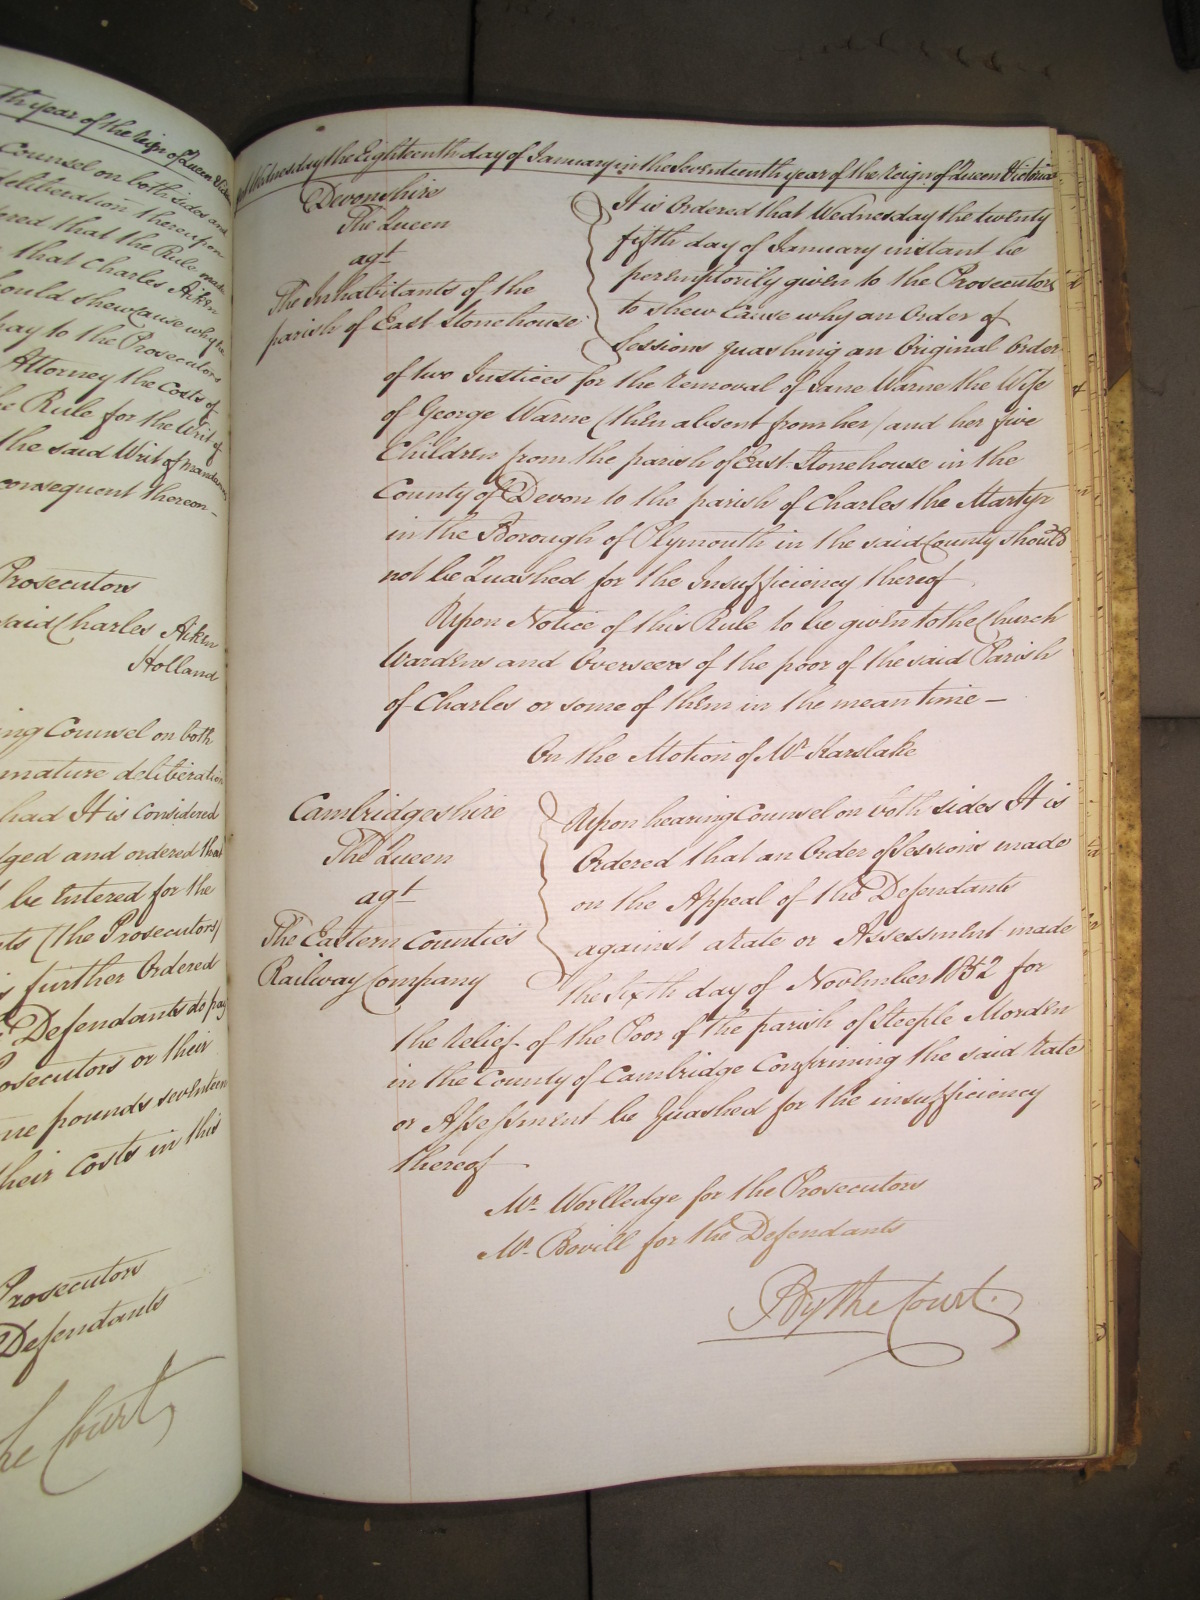 th year of the reign of Queen
Counsel on both sides and
deliberation thereupon
ered that the Rule made
that Charles Aiken
ould shew cause why he
pay to the Prosecutors
Attorney the Costs of
he Rule for the Writ of
the said Writ of Mandamus
consequent thereon –
Prosecutors
said Charles Aiken
Holland
ing Counsel on both
mature deliberation
had It is Considered
dged and ordered that
be Entered for the
nts (the Prosecutors)
is further Ordered
Defendants do pay
osecutors or their
ne pounds seventeen
their Costs in this
Prosecutors
Defendants
he Court
Wednesday the Eighteenth day of January in the Seventeenth year of the Reign of Queen Victoria
Devonshire
The Queen
agt
The Inhabitants of the
parish of East Stonehouse
It is Ordered that Wednesday the twenty
fifth day of January instant be
peremptorily given to the Prosecutors
to shew Cause why an Order of
Sessions quashing an Original Order
of two Justices for the removal of Jane Warne the Wife
of George Warne (then absent from her) and her five
Children from the parish of East Stonehouse in the
County of Devon to the parish of Charles the Martyr
in the Borough of Plymouth in the said County should
not be Quashed for the Insufficiency thereof
Upon Notice of this Rule to be given to the Church
Wardens and Overseers of the poor of the said Parish
of Charles or some of them in the mean time –
On the Motion of Mr. Karslake
Cambridgeshire
The Queen
agt
The Eastern Counties
Railway Company
Upon hearing Counsel on both sides It is
Ordered that an Order of Sessions made
on the Appeal of the Defendants
against a Rate or Assessment made
the sixth day of November 1852 for
the relief of the Poor of the parish of Steeple Morden
in the County of Cambridge Confirming the said Rate
or Assessment be Quashed for the insufficiency
thereof
Mr. Worlledge for the Prosecutors
Mr. Bovill for the Defendants
By the Court.